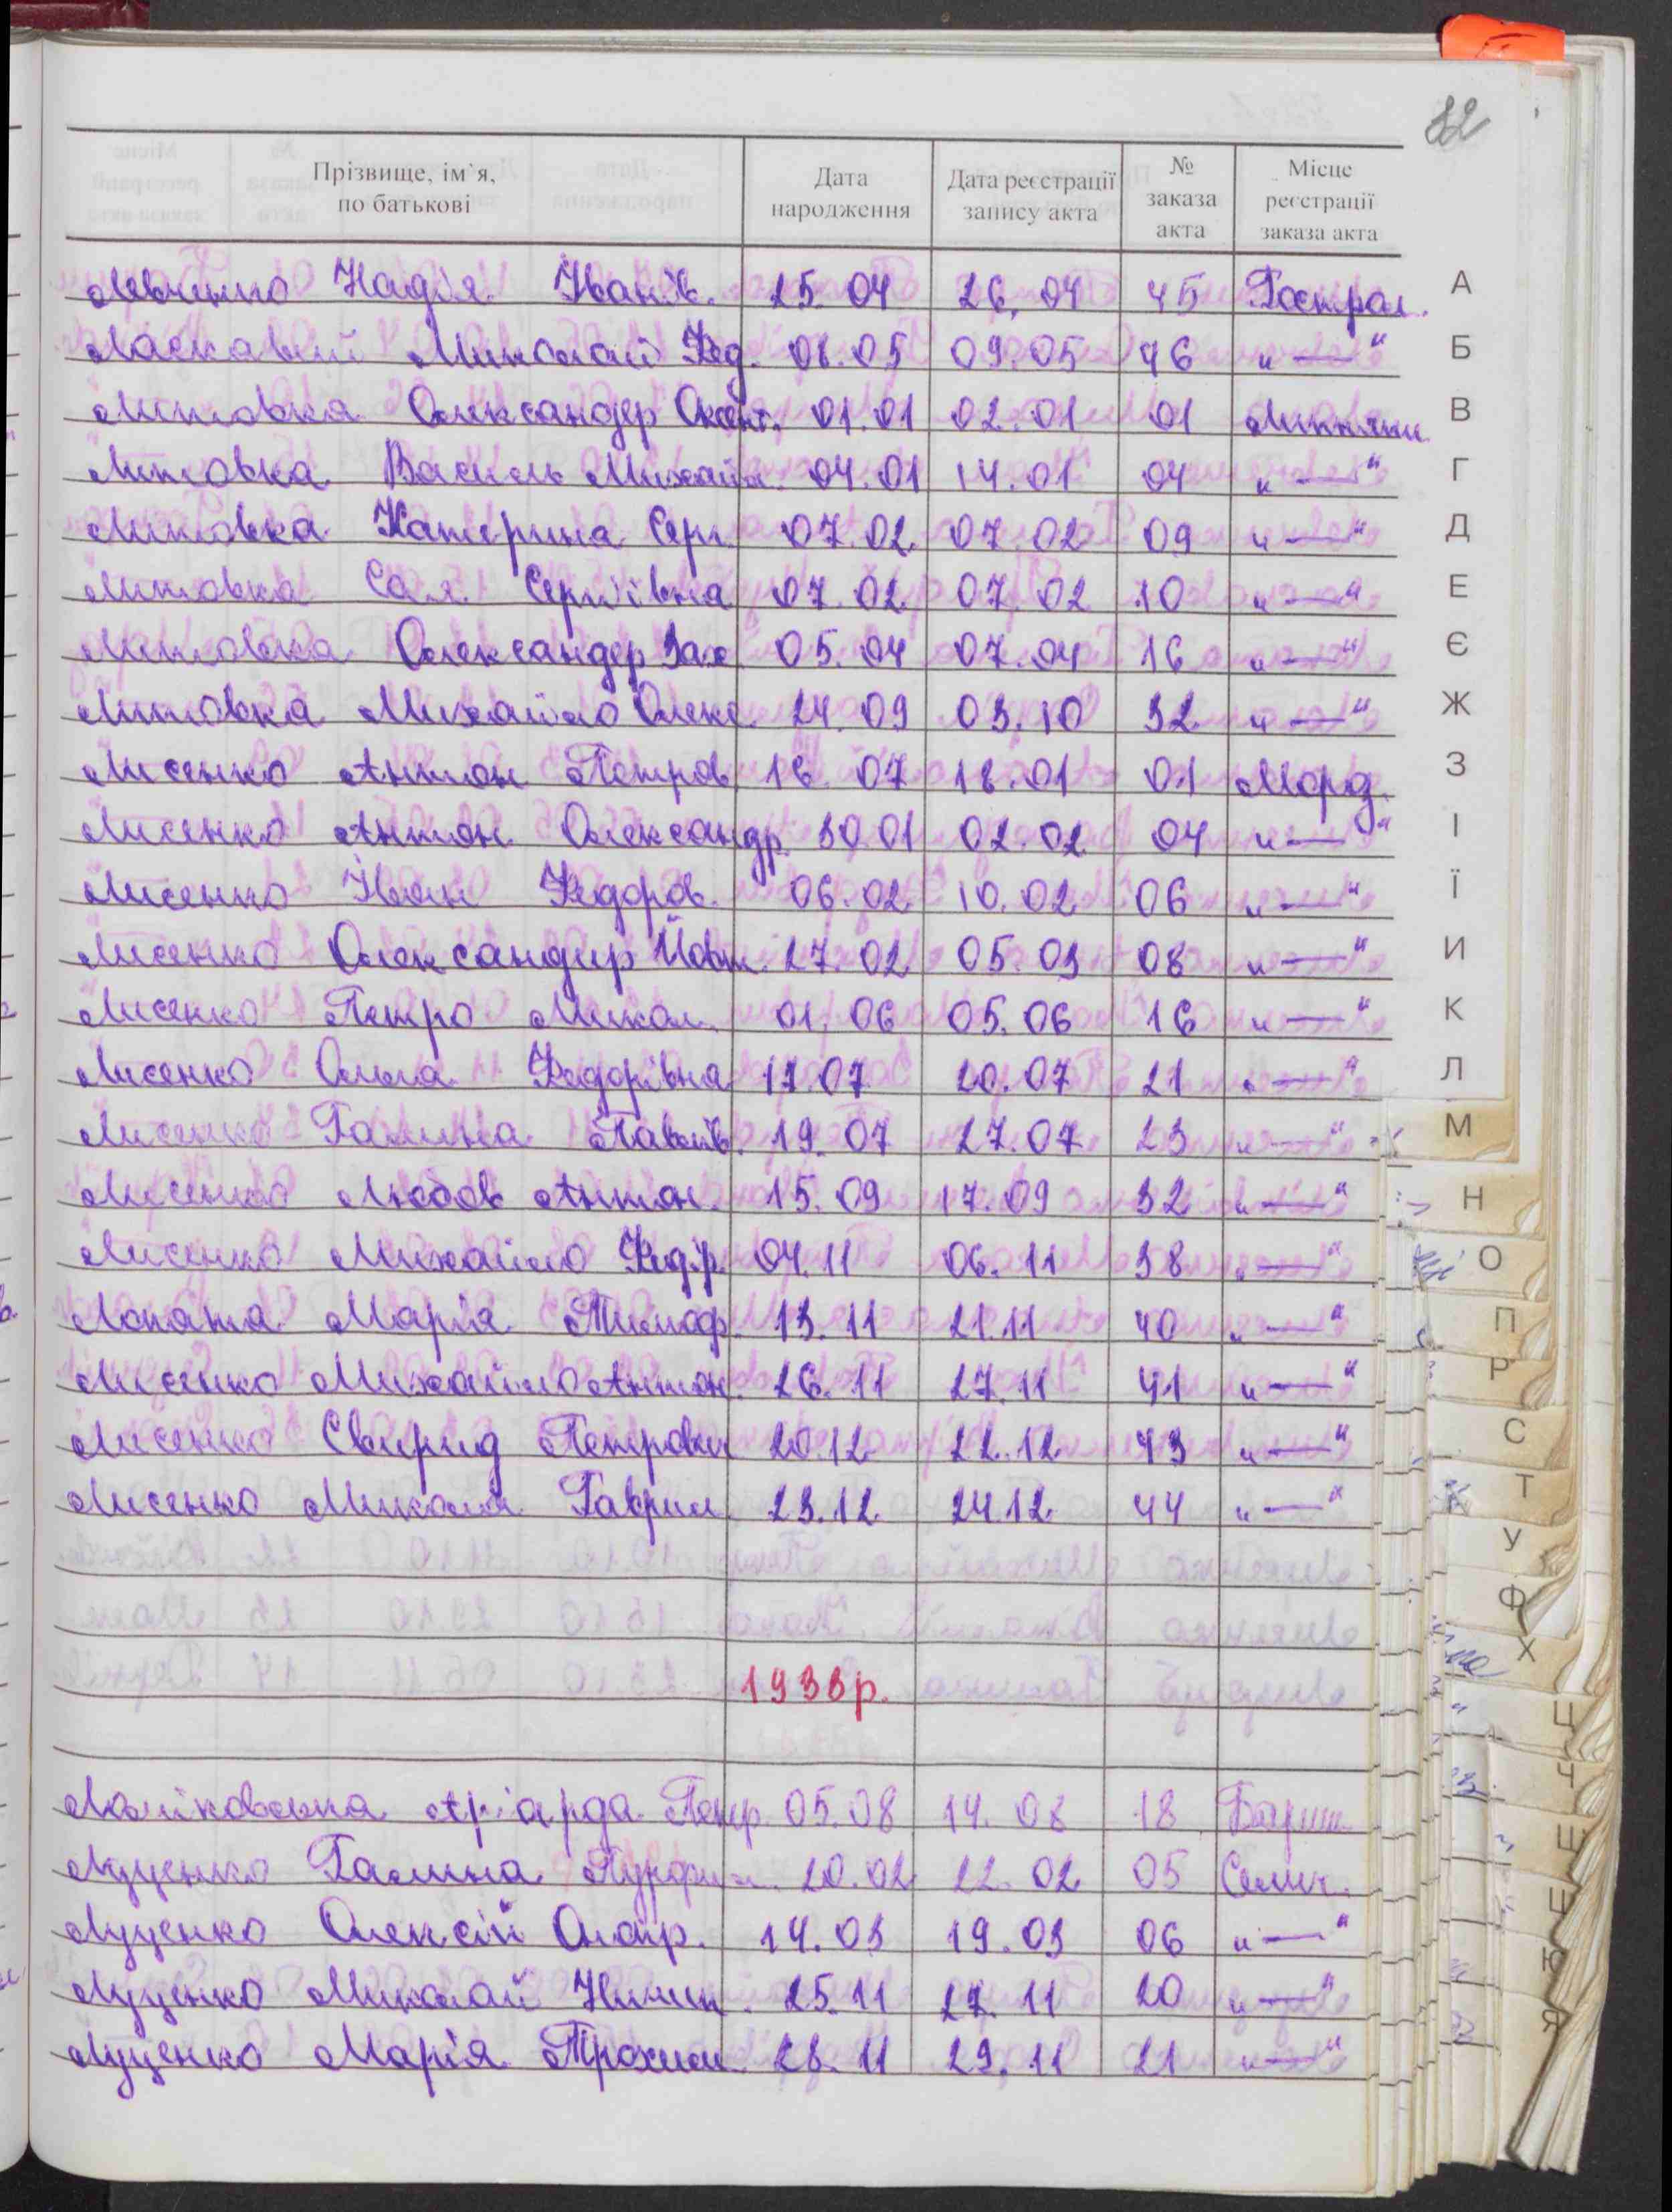 82
Прізвище, ім'я, по батькові Дата народження Дата реєстрації запису акта № заказа акта Місце реєстрації заказа акта
Левченко Надія Іванів. 25.04 26.04 45 Гострол. А
Ласкавий Миколай Фед. 08.05 09.05 46 „—" Б
Литовка Олександер Оксент. 01.01 02.01 01 В
Литовка Василь Михайл. 04.01 14.01 04 „—" Г
Литовка Катерина Серг. 07.02 07.02 09 „—" Д
Литовка Сергіївна 07.02 07.02 10 „—" Е
Литовка Олександер Зах. 05.04 07.04 16 „—" Є
Литовка Михайло Олекс. 24.09 03.10 32 „—" Ж
Лисенко Антон Петров. 16.07 18.01 01 Морд. З
Лисенко Антон Олександр. 30.01 02.02 04 „—" І
Лисенко Іван Федоров. 06.02 10.02 06 „—" Ї
Лисенко Олександир 27.02 05.03 08 „—" И
Лисенко Петро Микол. 01.06 05.06 16 „—" К
Лисенко Ольга Федорівна 17.07 20.07 21 „—" Л
Лисенко Галина Павлів. 19.07 27.07 23 „—" М
Лисенко Любов Антон. 15.09 17.09 32 „—" Н
Лисенко Михайло Федір. 04.11 06.11 38 „—" О
Лопата Марія Тимоф. 13.11 21.11 40 „—" П
Лисенко Михайло Антон. 26.11 27.11 41 „—" Р
Лисенко Свирид Петрович 20.12 22.12 43 „—" С
Лисенко Микола Гаврил. 23.12 24.12 44 „—" Т
У
Ф
Х
1933р.
Ц
Ч
Петр. 05.08 14.08 18 Бариш. Ш
Луценко Галина 20.02 22.02 05 Селич. Щ
Луценко Олексій 14.03 19.03 06 „—" Ю
Луценко Миколай 25.11 27.11 20 „—" Я
Луценко Марія Трохим. 28.11 29.11 21 „—"